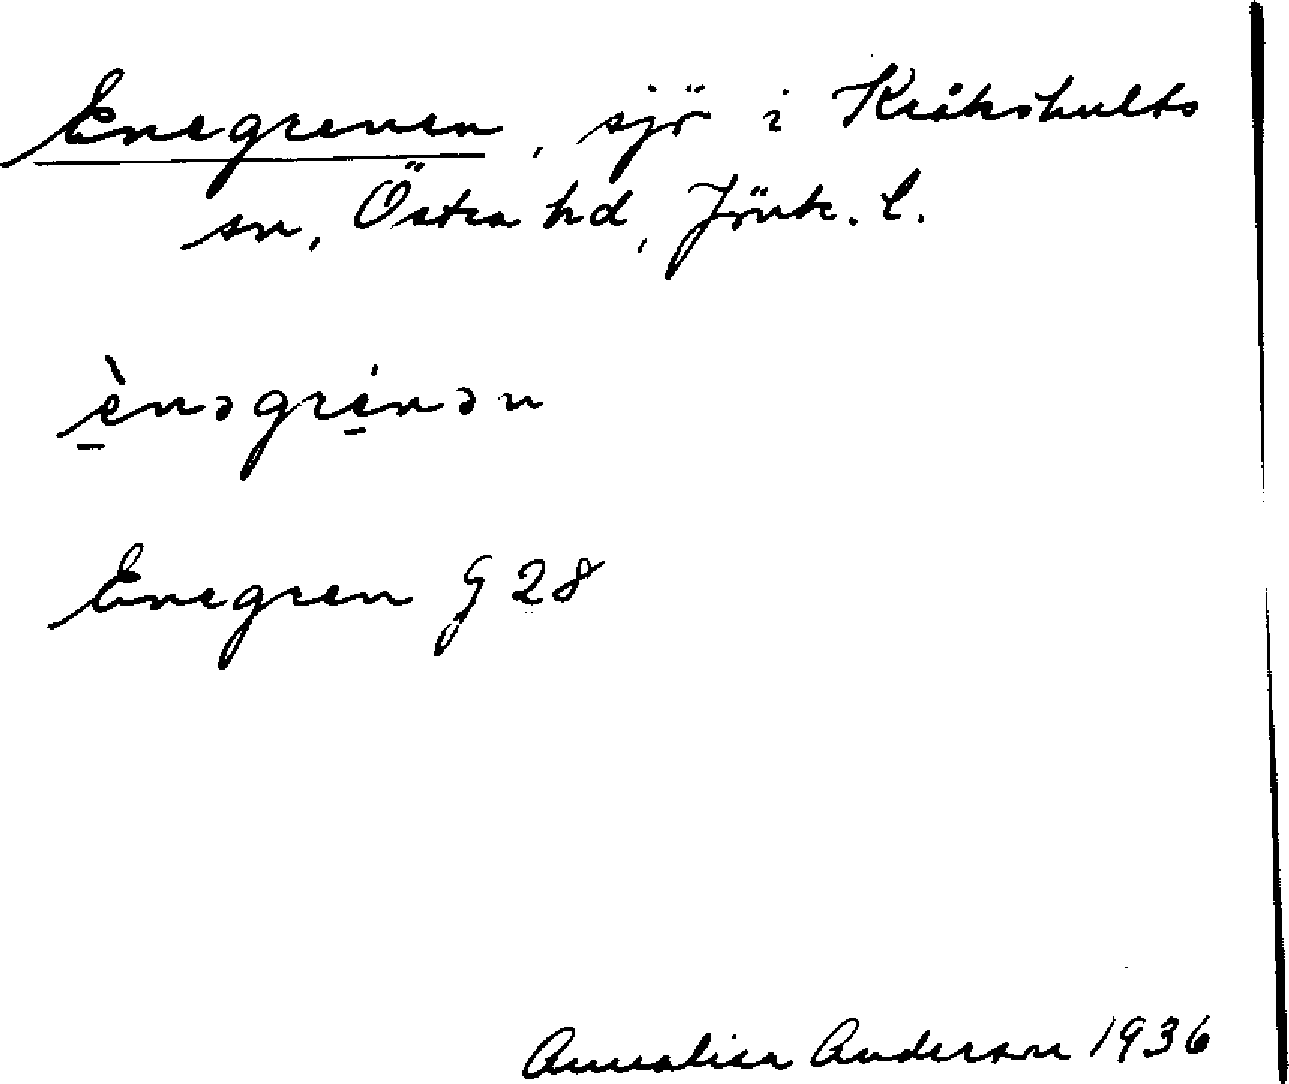 Enegrenen, sjö i Kråkshults
sn, Östra hd, Jönk. l.
ènəgrénən
Enegren G 28
Annalisa Anderson 1936